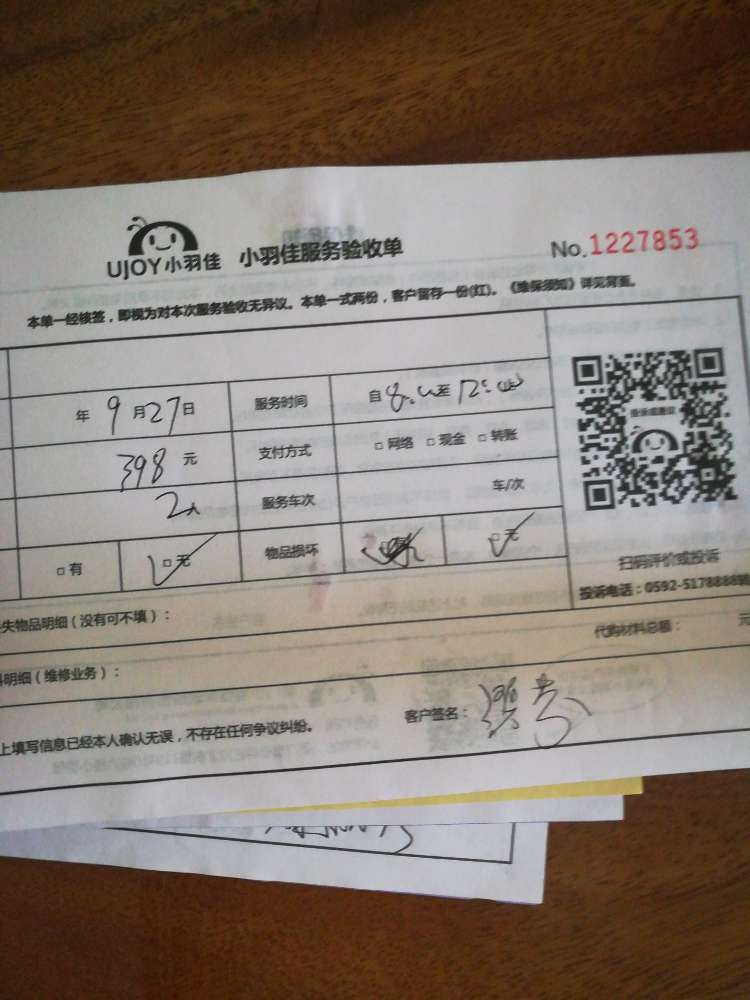 UJOY小羽佳 小羽佳服务验收单 No.1227853
本单一经核签，即视为对本次服务验收无异议。本单一式两份，客户留存一份(红)。《维保须知》详见背面。
年 9月27日 服务时间 自8:00至12:00
398 元 支付方式 □网络 □现金 □转账
2人 服务车次 车/次
□有 □无 物品损坏 □无
扫码评价或投诉
投诉电话：0592-5178888转
失物品明细（没有可不填）：
代购材料总额： 元
料明细（维修业务）：
上填写信息已经本人确认无误，不存在任何争议纠纷。 客户签名：